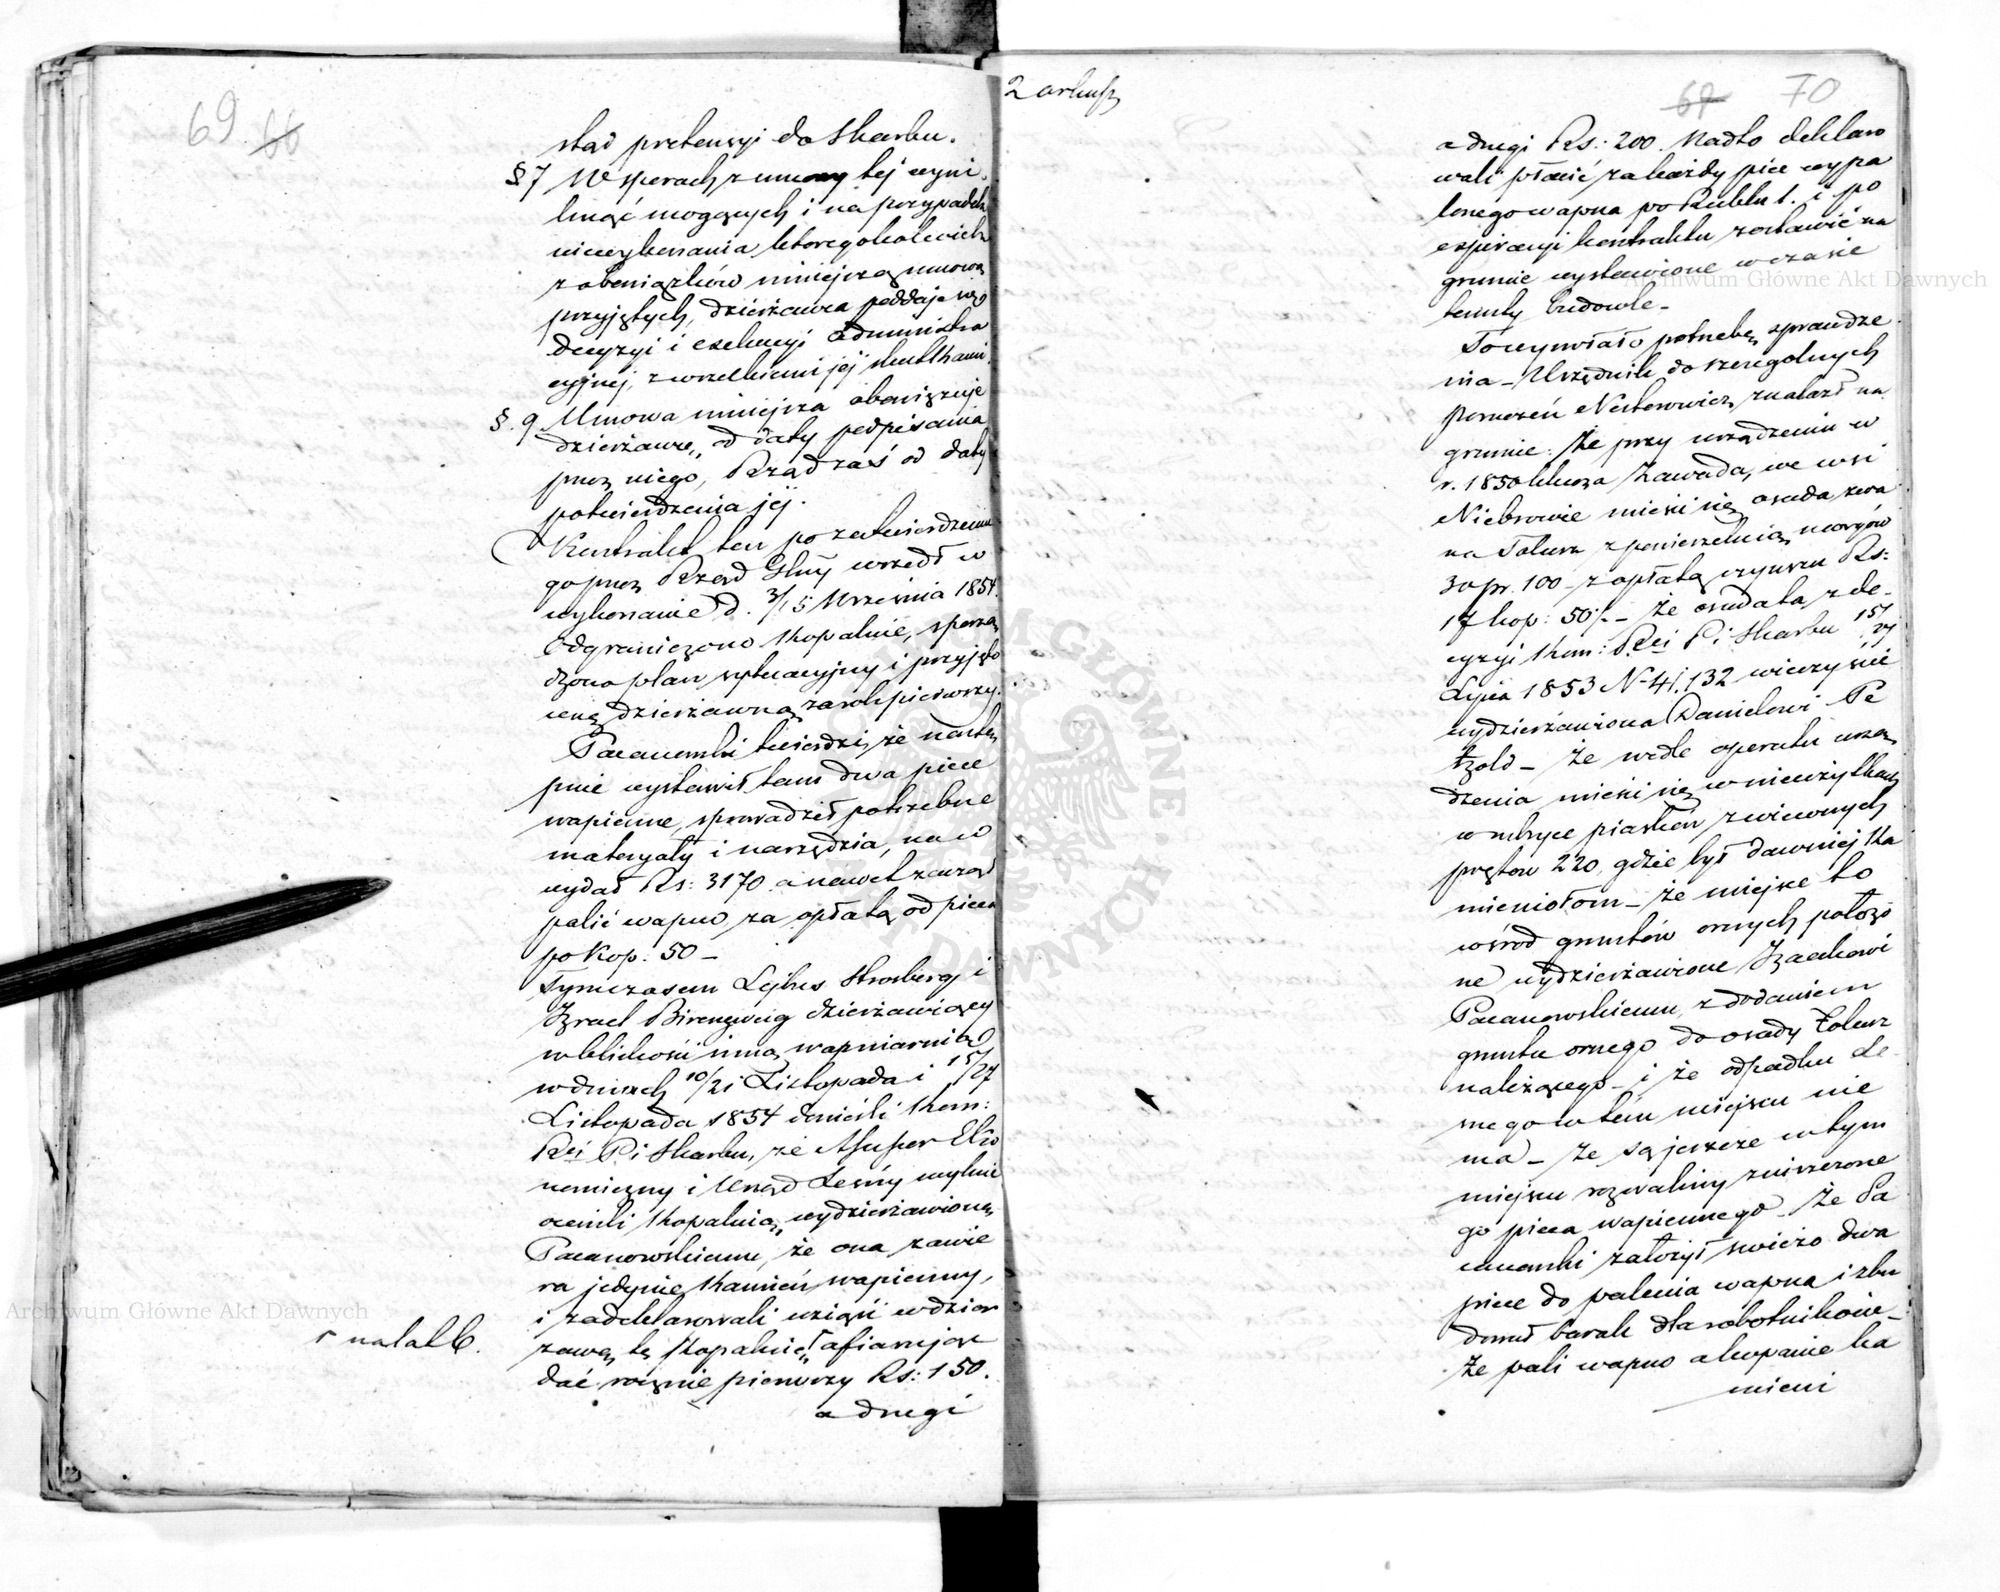 69 66
stąd pretensyi do Skarbu.
§7 W sporach z umowy tej wyni
knąć mogących i na przypadek
niewykonania któregokolwiek
z obowiązków niniejszą umową
przyjętych, dzierżawca poddaje się
decyzyi i exekucyi administra
cyjnej, z wszelkiemi jej skutkami.
§. 9. Umowa niniejsza obowiązuje
dzierżawcę, od daty podpisania
przez niego, Rząd zaś od daty
potwierdzenia jej.
Kontrakt ten po zatwierdzeniu
go przez Rząd Głny wszedł w
wykonanie d. 3/15 Września 1854.
Odgraniczono Kopalnię, sporzą
dzono plan sytuacyjny i przyjęto
cenę dzierżawną za rok pierwszy.
Pacanowski twierdzi, że nastę
pnie wystawił tam dwa piece
wapienne, sprowadził potrzebne
materyały i narzędzia, na co
wydał Rs: 3170 a nawet zaczął
palić wapno za opłatą od pieca
po Kop: 50 –
Tymczasem Lejbus Strosberg i
Izrael Birenzweig dzierżawiący
w bliskości inną wapniarnię
w dniach 10/21 Listopada i 15/27
Listopada 1854 donieśli Kom:
Rei P i Skarbu, że Assesor Eko
nomiczny i Urząd Leśny mylnie
ocenili Kopalnią, wydzierżawioną
Pacanowskiemu, że ona zawie
ra jedynie Kamień wapienny,
i zadeklarowali wziąść w dzier
żawę tę Kopalnię ofiarując
r na lat 6.
dać rocznie pierwszy Rs: 150.
a drugi
2 arkusz
67 70
a drugi Rs: 200. Nadto deklaro
wali płacić za każdy piec wypa
lonego wapna po Rublu 1. i po
expiracyi kontraktu zostawić na
gruncie wystawione w czasie
tenuty budowle –
To wywołało potrzebę sprawdze
nia – Urzędnik do szczególnych
poruczeń Nesterowicz znalazł na
gruncie: Że przy urządzeniu w
r. 1850 klucza Zawada, we wsi
Niebrowie mieści się osada zwa
na Tolusz z powierzchnią morgów
30 pr. 100 – z opłatą czynszu Rs:
17 kop: 50/. – Że osada ta, z de-
cyzyi Kom: Rei P i Skarbu 15/27
Lipca 1853 N 41,132 wieczyście
wydzierżawiona Danielowi Pe
tzold – Że wedle operatu urzą
dzenia mieści się w nieużytkach
w rubryce piasków zwiewnych
prętów 220, gdzie był dawniej Ka
mieniołom – że miejsce to
wśród gruntów ornych położo
ne wydzierżawione Izaakowi
Pacanowskiemu, z dodaniem
gruntu ornego do osady Tolusz
należącego – i że odpadku Le
śnego w tém miejscu nie
ma – Że są jeszcze w tym
miejscu rozwaliny zniszczone
go pieca wapiennego – Że Pa
canowski założył świeżo dwa
piece do palenia wapna i zbu
dował barak dla robotników –
Że pali wapno a kopanie ka
mieni